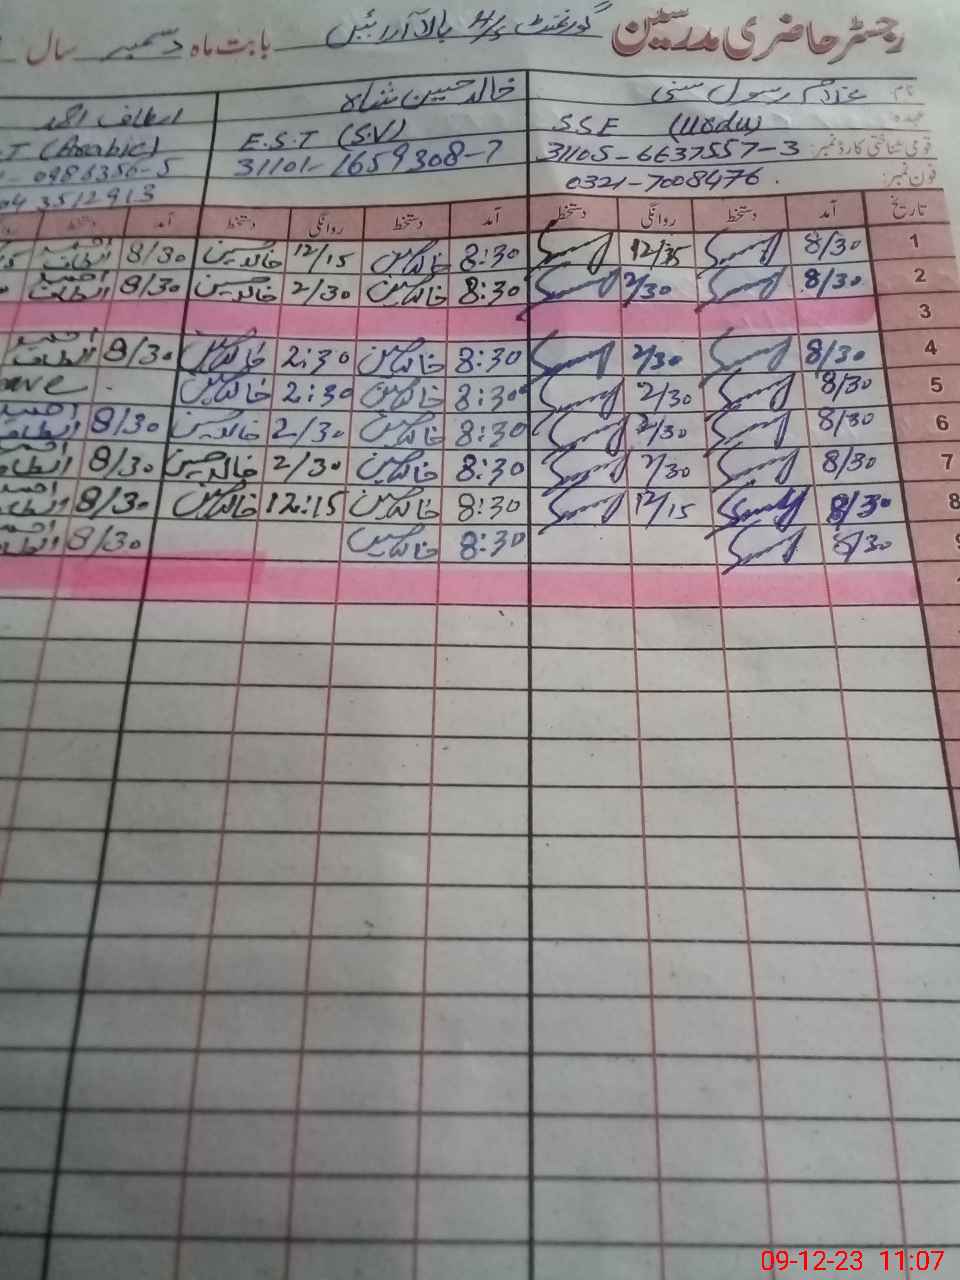 رجسٹر حاضری مدرسین گورنمنٹ H/S بالا آرائیں بابت ماہ دسمبر سال
نام غلام رسول خالد حسین شاہ الطاف احمد
عہدہ SSE (Urdu) E.S.T (S.V) .T (Arabic)
قومی شناختی کارڈ نمبر: 31105-6637557-3 31101-1659308-7 0986356-5
فون نمبر: 0321-7008476. 3512913
تاریخ آمد دستخط روانگی دستخط آمد دستخط روانگی دستخط آمد دستخط
1 8/30 12/15 8:30 خالد حسین 12/15 خالد حسین 8/30
2 8/30 2/30 8:30 خالد حسین 2/30 خالد حسین 8/30
3
4 8/30 2/30 8:30 خالد حسین 2:30 خالد حسین 8/30
5 8/30 2/30 8:30 خالد حسین 2:30 خالد حسین ave
6 8/30 2/30 8:30 خالد حسین 2/30 خالد حسین 8/30
7 8/30 2/30 8:30 خالد حسین 2/30 خالد حسین 8/30
8 8/30 12/15 8:30 خالد حسین 12:15 خالد حسین 8/30
9 8/30 8:30 خالد حسین 8/30
09-12-23 11:07